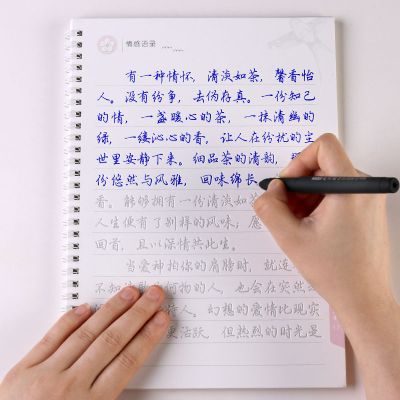 情感语录
有一种情怀，清淡如茶，馨香怡
人。没有纷争，去伪存真。一份知己
的情，一盏暖心的茶，一抹清幽的
绿，一缕沁心的香，让人在纷扰的尘
世里安静下来。细品茶的清韵，
份悠然与风雅，回味绵长
香。能够拥有一份清淡如
人生便有了别样的风味，愿
回首，且以深情共此生。
当爱神拍你的肩膀时，就连
不知 的人，也会在突然
人。幻想的爱情比现实
更活跃，但热烈的时光是